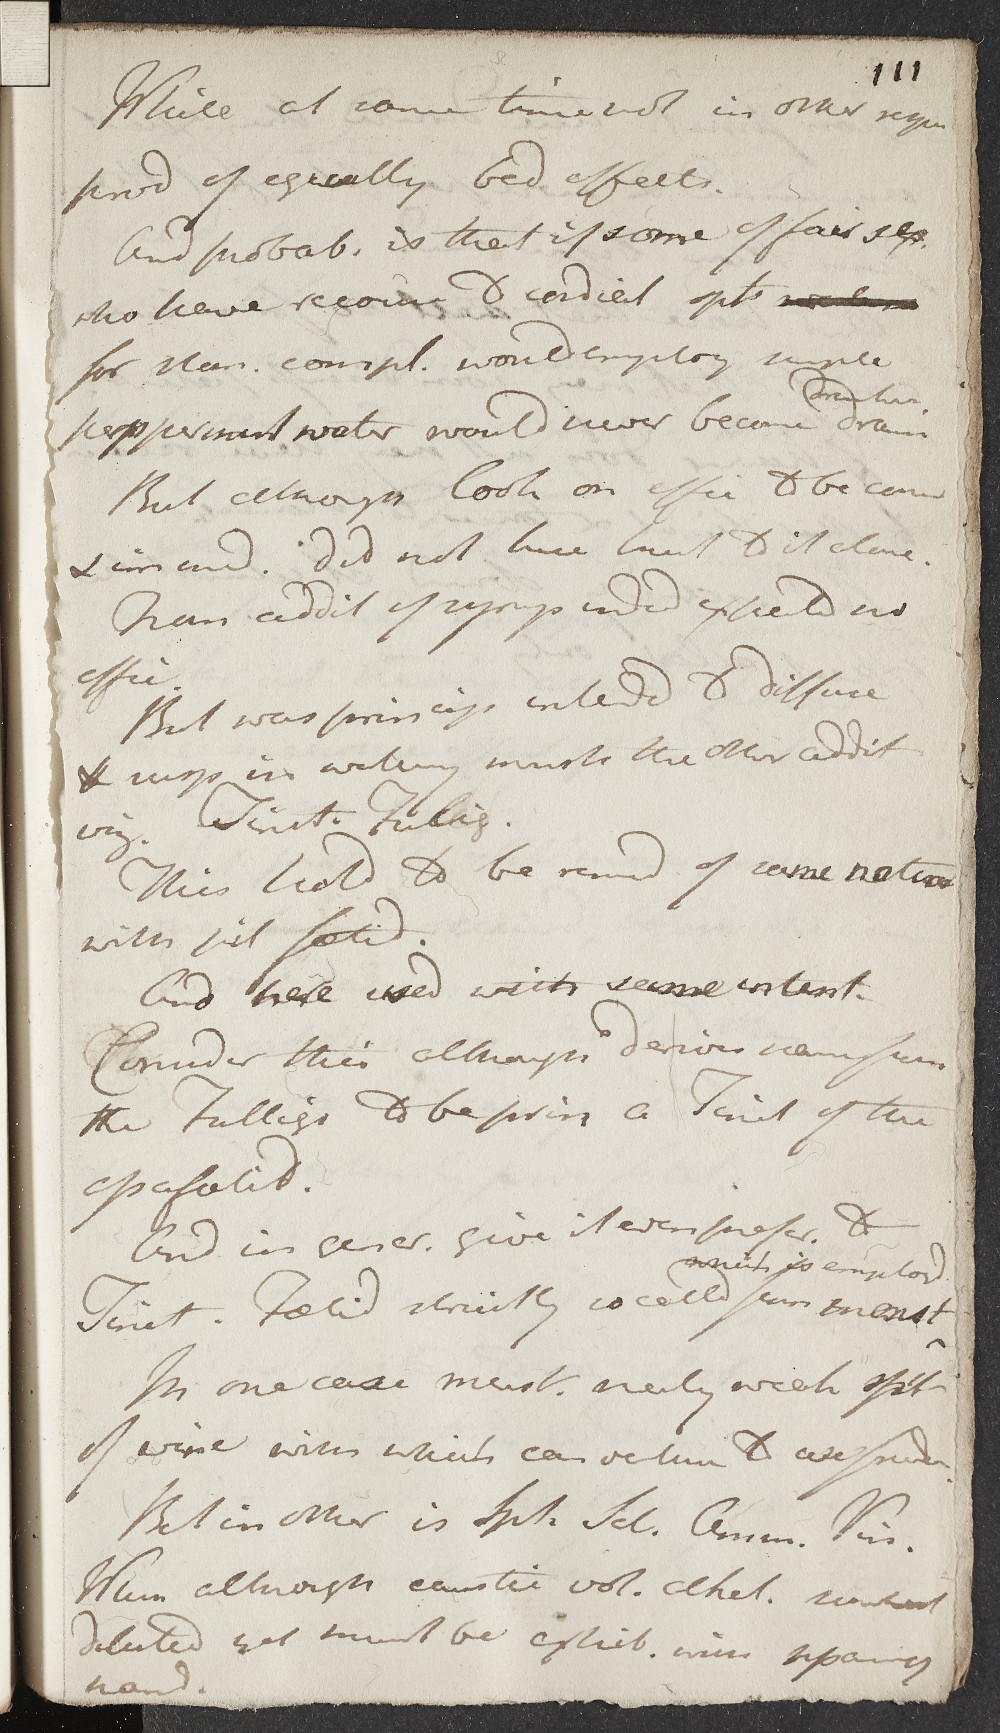 111
While at same time not in other respe
prod of equally bad effects.
And probab. is that if some of fair sex.
who have recourse to cordial spts
for stom. compl. would employ simple
peppermint water would never become dram
drinkers.
But although look on effic to be con
& in med. did not here trust to it alone.
From addit of syrup inded expected no
effic.
But was princip intended to diffuse
& susp in watery menst the other addit
viz. Tinct. Fulig.
This hold to be remed of same nature
with pil foetid.
And here used with same intent.
Consider this although derives name from
the Fuligo to be prin a Tinct of the
asafoetid.
And in gener. give it even prefer. to
which is employd
Tinct. Foetid strictly so calld from menst
In one case menst. merely weak spt
of wine with which can venture to use freedom.
But in other is Spt. Sal. Amm. Vin.
When although caustic vol. alkal.
diluted yet must be exhib. with sparing
hand.